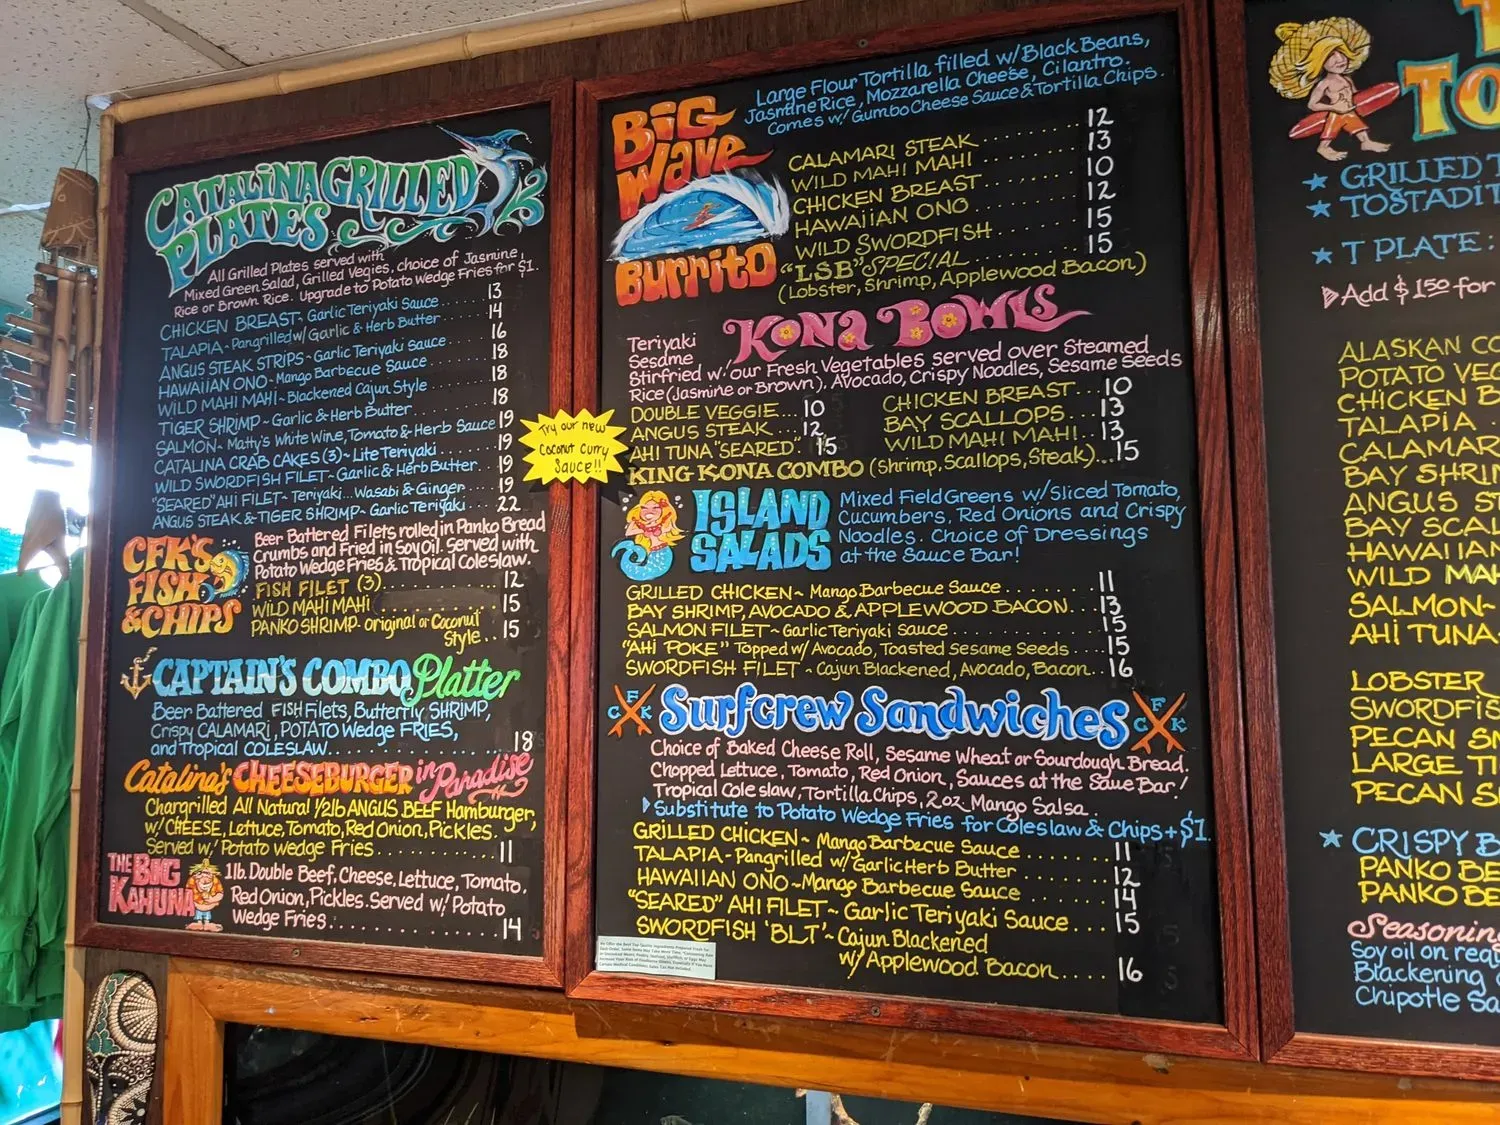 CATALINA GRILLED
PLATES
All Grilled Plates served with
Mixed Green Salad, Grilled Vegies, choice of Jasmine,
Rice or Brown Rice. Upgrade to Potato Wedge Fries for $1.
CHICKEN BREAST~ Garlic Teriyaki Sauce ....... 13
TALAPIA~Pangrilled w/ Garlic & Herb Butter ....... 14
ANGUS STEAK STRIPS~Garlic Teriyaki Sauce ..... 16
HAWAIIAN ONO~Mango Barbecue Sauce ....... 18
WILD MAHI MAHI~Blackened Cajun Style ....... 18
TIGER SHRIMP~Garlic & Herb Butter ....... 18
SALMON~Matty's White Wine, Tomato & Herb Sauce 19
CATALINA CRAB CAKES (3)~Lite Teriyaki ....... 19
WILD SWORDFISH FILET~Garlic & Herb Butter .. 19
"SEARED" AHI FILET~Teriyaki...Wasabi & Ginger ... 19
ANGUS STEAK & TIGER SHRIMP~Garlic Teriyaki .. 22
CFK'S
FISH
& CHIPS
Beer Battered Filets rolled in Panko Bread
Crumbs and Fried in Soy Oil. Served with
Potato Wedge Fries & Tropical Coleslaw.
FISH FILET (3) ....... 12
WILD MAHI MAHI ....... 15
PANKO SHRIMP- original or Coconut
Style.. 15
CAPTAIN'S COMBO Platter
Beer Battered FISH Filets, Butterfly SHRIMP,
Crispy CALAMARI, POTATO Wedge FRIES,
and Tropical COLESLAW ....... 18
Catalina's CHEESEBURGER in Paradise
Chargrilled All Natural 1/2lb ANGUS BEEF Hamburger,
w/ CHEESE, Lettuce, Tomato, Red Onion, Pickles.
Served w/ Potato Wedge Fries ....... 11
THE BIG
KAHUNA
1lb. Double Beef, Cheese, Lettuce, Tomato.
Red Onion, Pickles. Served w/ Potato
Wedge Fries ....... 14
Try our new
Coconut Curry
Sauce!!
BIG
Wave
Burrito
Large Flour Tortilla filled w/ Black Beans,
Jasmine Rice, Mozzarella Cheese, Cilantro.
Comes w/ Gumbo Cheese Sauce & Tortilla Chips.
CALAMARI STEAK ....... 12
WILD MAHI MAHI ....... 13
CHICKEN BREAST ....... 10
HAWAIIAN ONO ....... 12
WILD SWORDFISH ....... 15
"LSB" SPECIAL ....... 15
(Lobster, Shrimp, Applewood Bacon)
KONA BOWLS
Teriyaki
Sesame
Stirfried w/ our Fresh Vegetables served over Steamed
Rice (Jasmine or Brown). Avocado, Crispy Noodles, Sesame Seeds
DOUBLE VEGGIE... 10
ANGUS STEAK... 12
AHI TUNA "SEARED". 15
CHICKEN BREAST... 10
BAY SCALLOPS.... 13
WILD MAHI MAHI.. 13
KING KONA COMBO (Shrimp, Scallops, Steak)... 15
ISLAND
SALADS
Mixed Field Greens w/ Sliced Tomato,
Cucumbers, Red Onions and Crispy
Noodles. Choice of Dressings
at the Sauce Bar!
GRILLED CHICKEN~ Mango Barbecue Sauce ....... 11
BAY SHRIMP, AVOCADO & APPLEWOOD BACON... 13
SALMON FILET~Garlic Teriyaki Sauce ....... 15
"AHI POKE" Topped w/ Avocado, Toasted Sesame Seeds .... 15
SWORDFISH FILET ~ Cajun Blackened, Avocado, Bacon.. 16
C F K
Surfcrew Sandwiches
C F K
Choice of Baked Cheese Roll, Sesame Wheat or Sourdough Bread.
Chopped Lettuce, Tomato, Red Onion, Sauces at the Saue Bar!
Tropical Coleslaw, Tortilla Chips, 2oz. Mango Salsa.
Substitute to Potato Wedge Fries for Coleslaw & Chips + $1.
GRILLED CHICKEN~Mango Barbecue Sauce ....... 11
TALAPIA~Pangrilled w/ Garlic Herb Butter ....... 12
HAWAIIAN ONO~Mango Barbecue Sauce ....... 14
"SEARED" AHI FILET~ Garlic Teriyaki Sauce .... 15
SWORDFISH 'BLT'~ Cajun Blackened
w/ Applewood Bacon .... 16
GRILLED
TOSTADIT
T PLATE:
Add $1.50 for
ALASKAN CO
POTATO VEG
CHICKEN B
TALAPIA
CALAMAR
BAY SHRI
ANGUS S
BAY SCAL
HAWAIIAN
WILD MAH
SALMON~
AHI TUNA
LOBSTER
SWORDFIS
PECAN SN
LARGE TI
PECAN S
CRISPY B
PANKO BE
PANKO BE
Seasoning
Soy oil on req
Blackening
Chipotle Sa